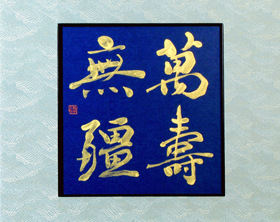 萬壽
無疆